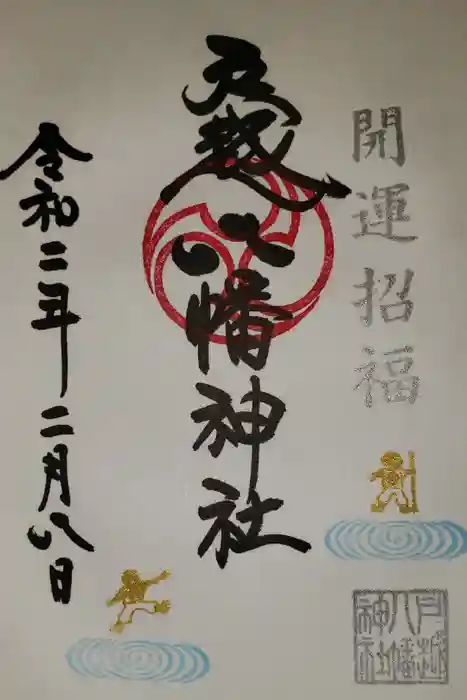 開運招福
戸越八幡神社
令和二年二月八日
戸越八幡神社